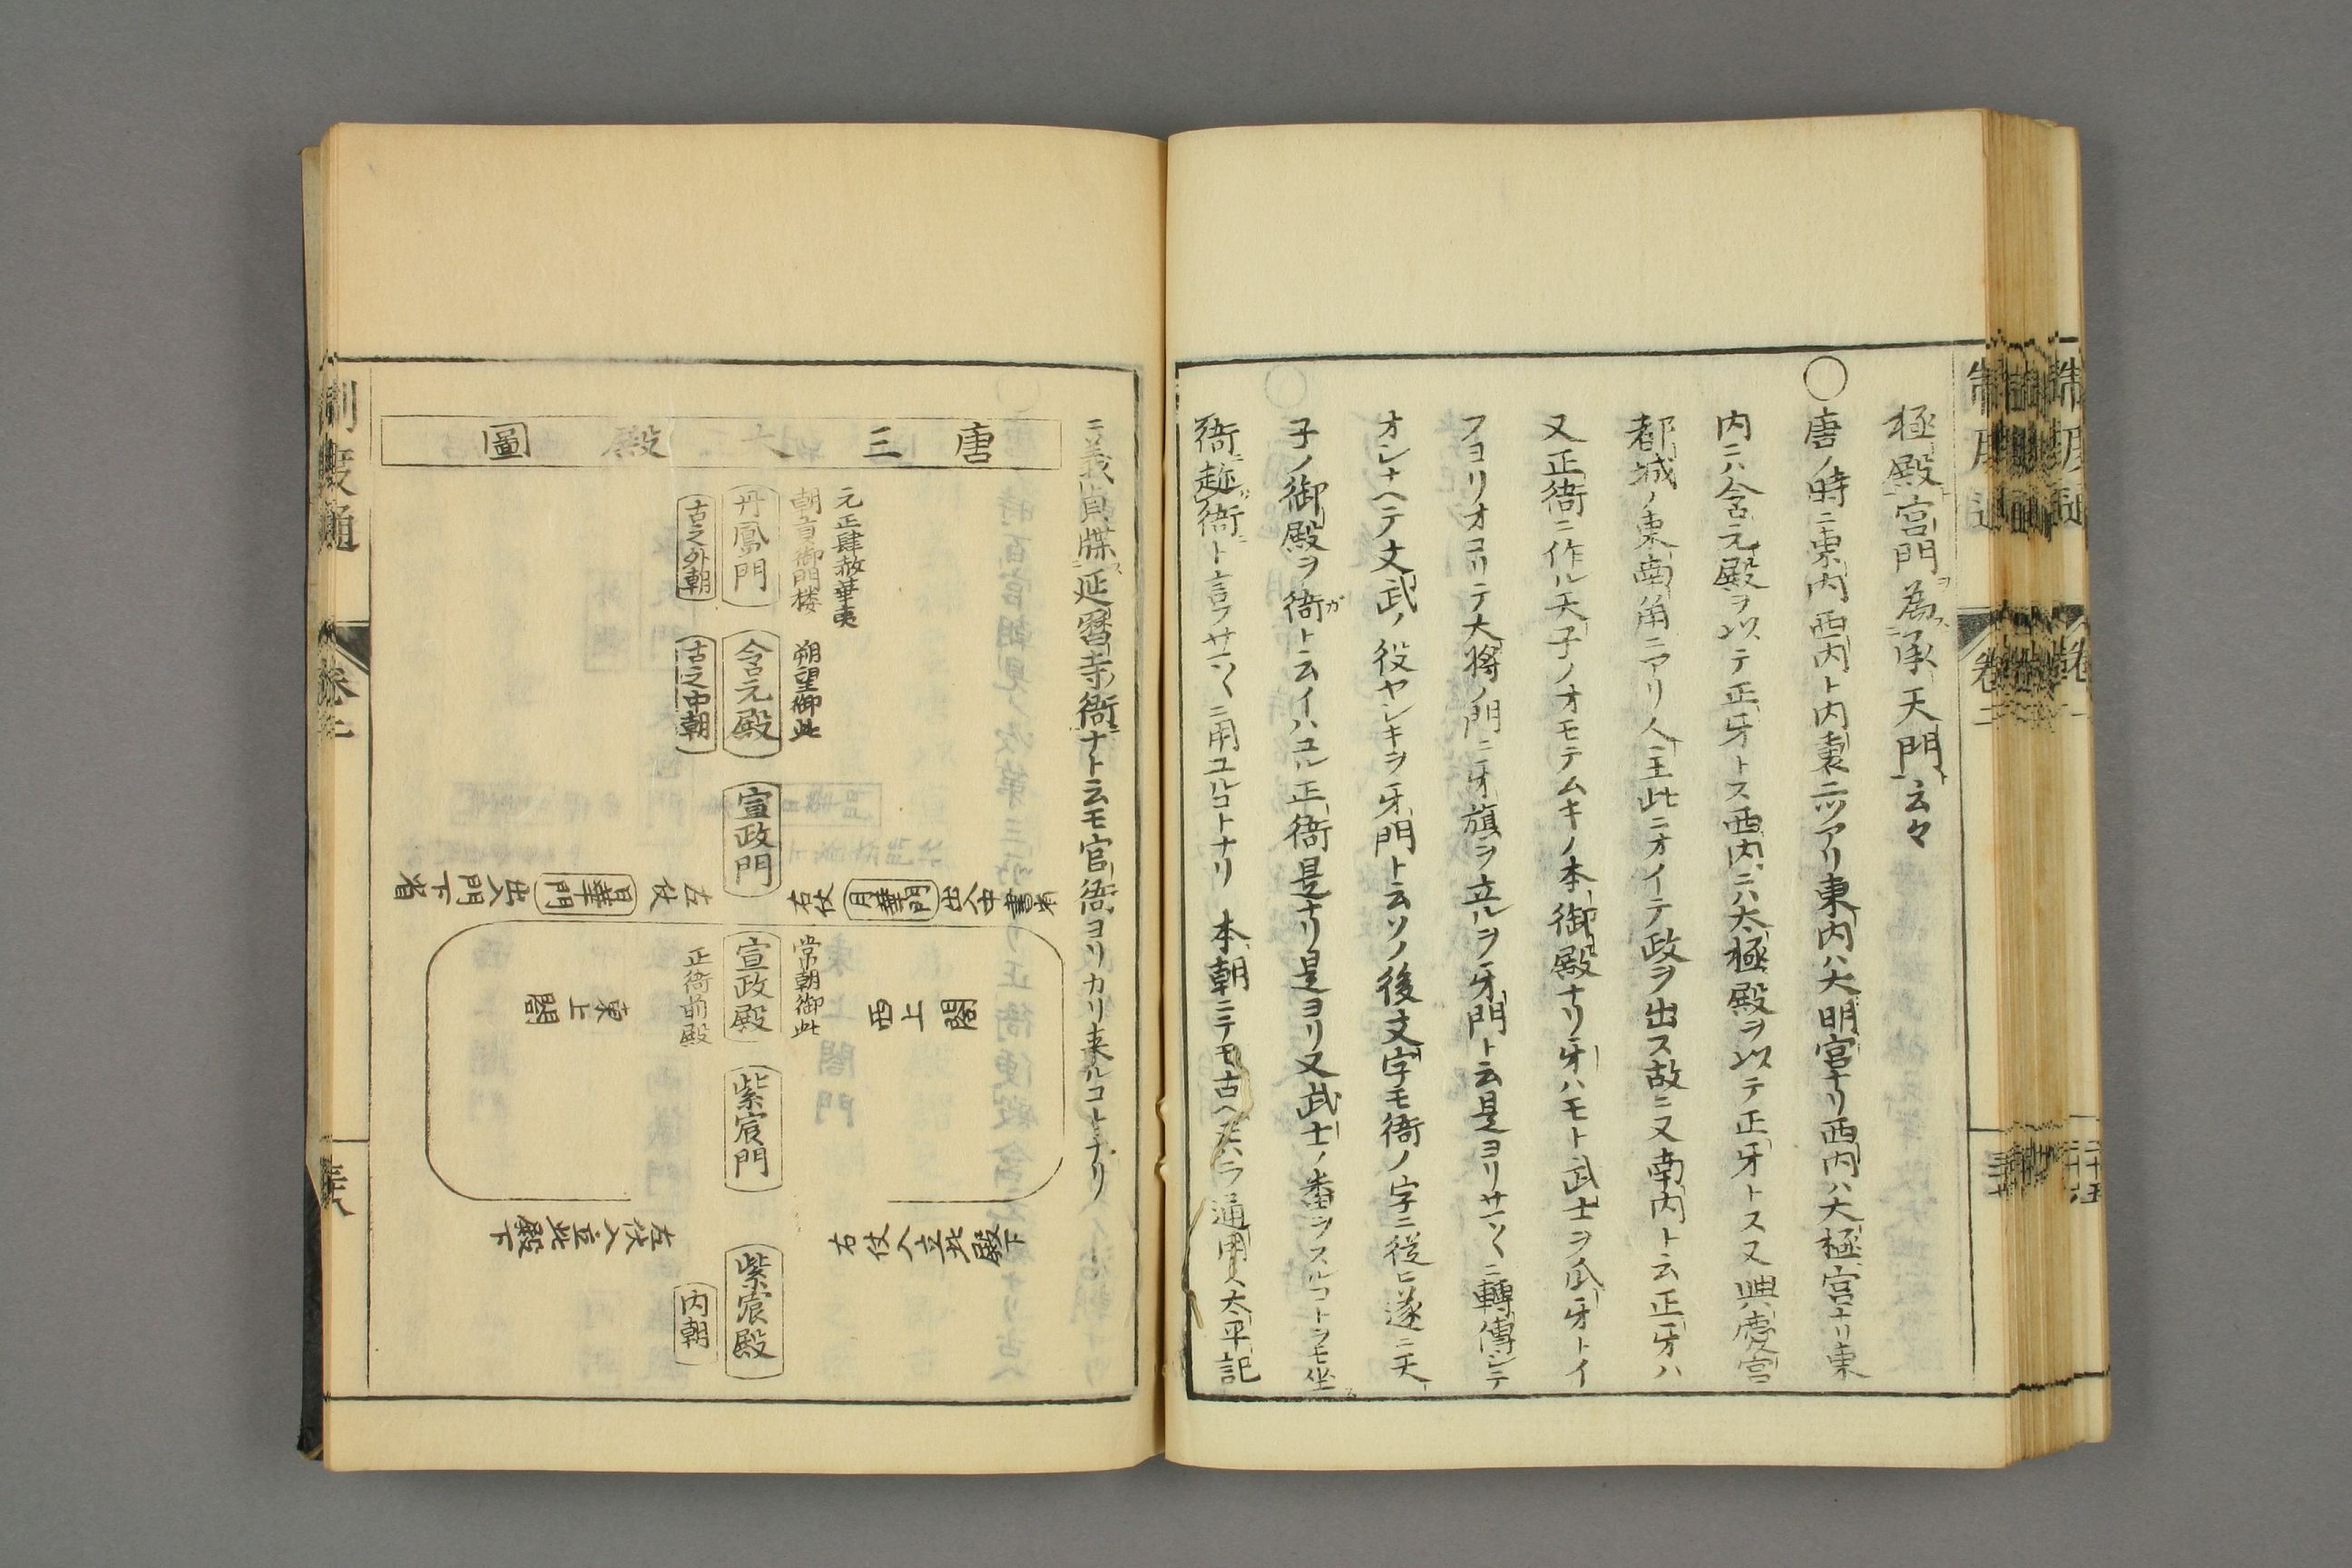 極殿宮門為承天門云々
○唐ノ時ニ東内西内ト内裏二ツアリ東内ハ大明宮ナリ西内ハ大極宮ナリ東
内ニハ含元殿ヲ以テ正牙トス西内ニハ太極殿ヲ以テ正牙トス又興慶宮
都城ノ東南ノ角ニアリ人主此ニオイテ政ヲ出ス故ニ又南内ト云正牙ハ
又正衙ニ作ル天子ノオモテムキノ本御殿ナリ牙ハモト武士ヲ爪牙トイ
フヨリオコリテ大将ノ門ニ牙旗ヲ立ルヲ牙門ト云是ヨリサマ〱ニ轉傳シテ
オシナヘテ文武ノ役ヤシキヲ牙門ト云ソノ後文字モ衙ノ字ニ従ヒ遂ニ天
子ノ御殿ヲ衙ト云イハユル正衙是ナリ是ヨリ又武士ノ番ヲスルコトヲモ坐
衙趁衙ト言フサマ〱ニ用ユルコトナリ 本朝ニテモ古ヘ通用太平記
ニ義貞牒延暦寺衙ナト云モ官衙ヨリカリ来ルコトナリ
唐三大殿圖
元正肆赦華夷
朝貢御門楼
丹鳳門
古之外朝
朔望御此
含元殿
古之中朝
宣政門
右仗 月華門 出入中書省
左仗 日華門 出入門下省
常朝御此
宣政殿
正衙前殿
西上閤
東上閤
紫宸門
右仗入立此殿下
左仗入立此殿下
紫宸殿
内朝
制度通
卷二